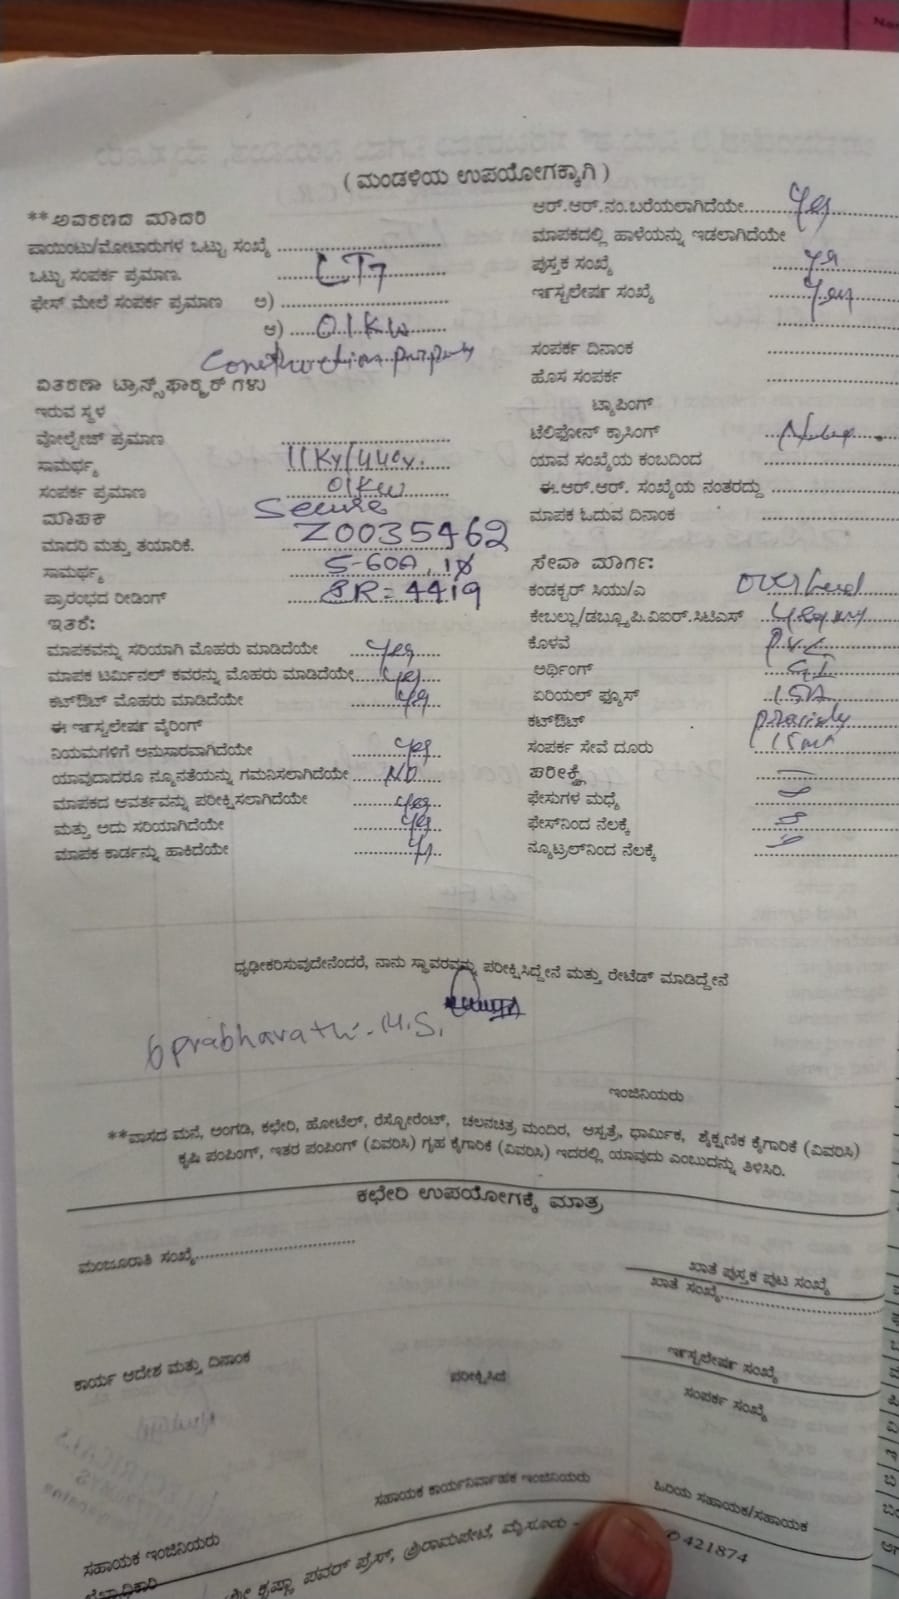 ( ಮಂಡಳಿಯ ಉಪಯೋಗಕ್ಕಾಗಿ )
**ಅವರಣದ ಮಾದರಿ
ಪಾಯಿಂಟು/ಮೋಟಾರುಗಳ ಒಟ್ಟು ಸಂಖ್ಯೆ
ಒಟ್ಟು ಸಂಪರ್ಕ ಪ್ರಮಾಣ. LT7
ಫೇಸ್ ಮೇಲೆ ಸಂಪರ್ಕ ಪ್ರಮಾಣ ಅ)
ಆ) 01KW
ವಿತರಣಾ ಟ್ರಾನ್ಸ್‌ಫಾರ್ಮರ್ ಗಳು
ಇರುವ ಸ್ಥಳ
ವೋಲ್ಟೇಜ್ ಪ್ರಮಾಣ
ಸಾಮರ್ಥ್ಯ 11KV/440V.
ಸಂಪರ್ಕ ಪ್ರಮಾಣ 01KW
ಮಾಪಕ Secure
ಮಾದರಿ ಮತ್ತು ತಯಾರಿಕೆ. Z0035462
ಸಾಮರ್ಥ್ಯ 5-60A, 1Ø
ಪ್ರಾರಂಭದ ರೀಡಿಂಗ್ = 4419
ಇತರೆ:
ಮಾಪಕವನ್ನು ಸರಿಯಾಗಿ ಮೊಹರು ಮಾಡಿದೆಯೇ yes
ಮಾಪಕ ಟರ್ಮಿನಲ್ ಕವರನ್ನು ಮೊಹರು ಮಾಡಿದೆಯೇ yes
ಕಟ್‌ಔಟ್ ಮೊಹರು ಮಾಡಿದೆಯೇ yes
ಈ ಇನ್‌ಸ್ಟಲೇಷನ್ ವೈರಿಂಗ್
ನಿಯಮಗಳಿಗೆ ಅನುಸಾರವಾಗಿದೆಯೇ yes
ಯಾವುದಾದರೂ ನ್ಯೂನತೆಯನ್ನು ಗಮನಿಸಲಾಗಿದೆಯೇ NO
ಮಾಪಕದ ಆವರ್ತವನ್ನು ಪರೀಕ್ಷಿಸಲಾಗಿದೆಯೇ yes
ಮತ್ತು ಅದು ಸರಿಯಾಗಿದೆಯೇ yes
ಮಾಪಕ ಕಾರ್ಡನ್ನು ಹಾಕಿದೆಯೇ
ಆರ್.ಆರ್.ನಂ.ಬರೆಯಲಾಗಿದೆಯೇ yes
ಮಾಪಕದಲ್ಲಿ ಹಾಳೆಯನ್ನು ಇಡಲಾಗಿದೆಯೇ
ಪುಸ್ತಕ ಸಂಖ್ಯೆ
ಇನ್‌ಸ್ಟಲೇಷನ್ ಸಂಖ್ಯೆ
ಸಂಪರ್ಕ ದಿನಾಂಕ
ಹೊಸ ಸಂಪರ್ಕ
ಟ್ಯಾಪಿಂಗ್
ಟೆಲಿಫೋನ್ ಕ್ರಾಸಿಂಗ್
ಯಾವ ಸಂಖ್ಯೆಯ ಕಂಬದಿಂದ
ಈ.ಆರ್.ಆರ್. ಸಂಖ್ಯೆಯ ನಂತರದ್ದು
ಮಾಪಕ ಓದುವ ದಿನಾಂಕ
ಸೇವಾ ಮಾರ್ಗ:
ಕಂಡಕ್ಟರ್ ಸಿಯು/ಎ overhead
ಕೇಬಲ್ಲು/ಡಬ್ಲ್ಯೂ.ಪಿ.ವಿಐರ್.ಸಿಟಿಎಸ್
ಕೊಳವೆ P.V.C
ಅರ್ಥಿಂಗ್ G.I
ಏರಿಯಲ್ ಫ್ಯೂಸ್ 15A
ಕಟ್‌ಔಟ್
ಸಂಪರ್ಕ ಸೇವೆ ದೂರು
ಪರೀಕ್ಷೆ
ಫೇಸುಗಳ ಮಧ್ಯೆ
ಫೇಸ್‌ನಿಂದ ನೆಲಕ್ಕೆ
ನ್ಯೂಟ್ರಲ್‌ನಿಂದ ನೆಲಕ್ಕೆ
ಧೃಢೀಕರಿಸುವುದೇನೆಂದರೆ, ನಾನು ಸ್ಥಾವರವನ್ನು ಪರೀಕ್ಷಿಸಿದ್ದೇನೆ ಮತ್ತು ರೇಟೆಡ್ ಮಾಡಿದ್ದೇನೆ
M.S.
ಇಂಜಿನಿಯರು
**ವಾಸದ ಮನೆ, ಅಂಗಡಿ, ಕಛೇರಿ, ಹೋಟೆಲ್, ರೆಸ್ಟೋರೆಂಟ್, ಚಲನಚಿತ್ರ ಮಂದಿರ, ಆಸ್ಪತ್ರೆ, ಧಾರ್ಮಿಕ, ಶೈಕ್ಷಣಿಕ ಕೈಗಾರಿಕೆ (ವಿವರಿಸಿ)
ಕೃಷಿ ಪಂಪಿಂಗ್, ಇತರ ಪಂಪಿಂಗ್ (ವಿವರಿಸಿ) ಗೃಹ ಕೈಗಾರಿಕೆ (ವಿವರಿಸಿ) ಇದರಲ್ಲಿ ಯಾವುದು ಎಂಬುದನ್ನು ತಿಳಿಸಿರಿ.
ಕಛೇರಿ ಉಪಯೋಗಕ್ಕೆ ಮಾತ್ರ
ಮಂಜೂರಾತಿ ಸಂಖ್ಯೆ
ಖಾತೆ ಪುಸ್ತಕ ಪುಟ ಸಂಖ್ಯೆ
ಖಾತೆ ಸಂಖ್ಯೆ
ಕಾರ್ಯ ಆದೇಶ ಮತ್ತು ದಿನಾಂಕ
ಪರೀಕ್ಷಿಸಿದೆ
ಇನ್‌ಸ್ಟಲೇಷನ್ ಸಂಖ್ಯೆ
ಸಂಪರ್ಕ ಸಂಖ್ಯೆ
ಸಹಾಯಕ ಇಂಜಿನಿಯರು
ಸಹಾಯಕ ಕಾರ್ಯನಿರ್ವಾಹಕ ಇಂಜಿನಿಯರು
ಹಿರಿಯ ಸಹಾಯಕ/ಸಹಾಯಕ
ಶ್ರೀ ಕೃಷ್ಣಾ ಪವರ್ ಪ್ರೆಸ್, ಶ್ರೀರಾಮಪೇಟೆ, ಮೈಸೂರು - 421874